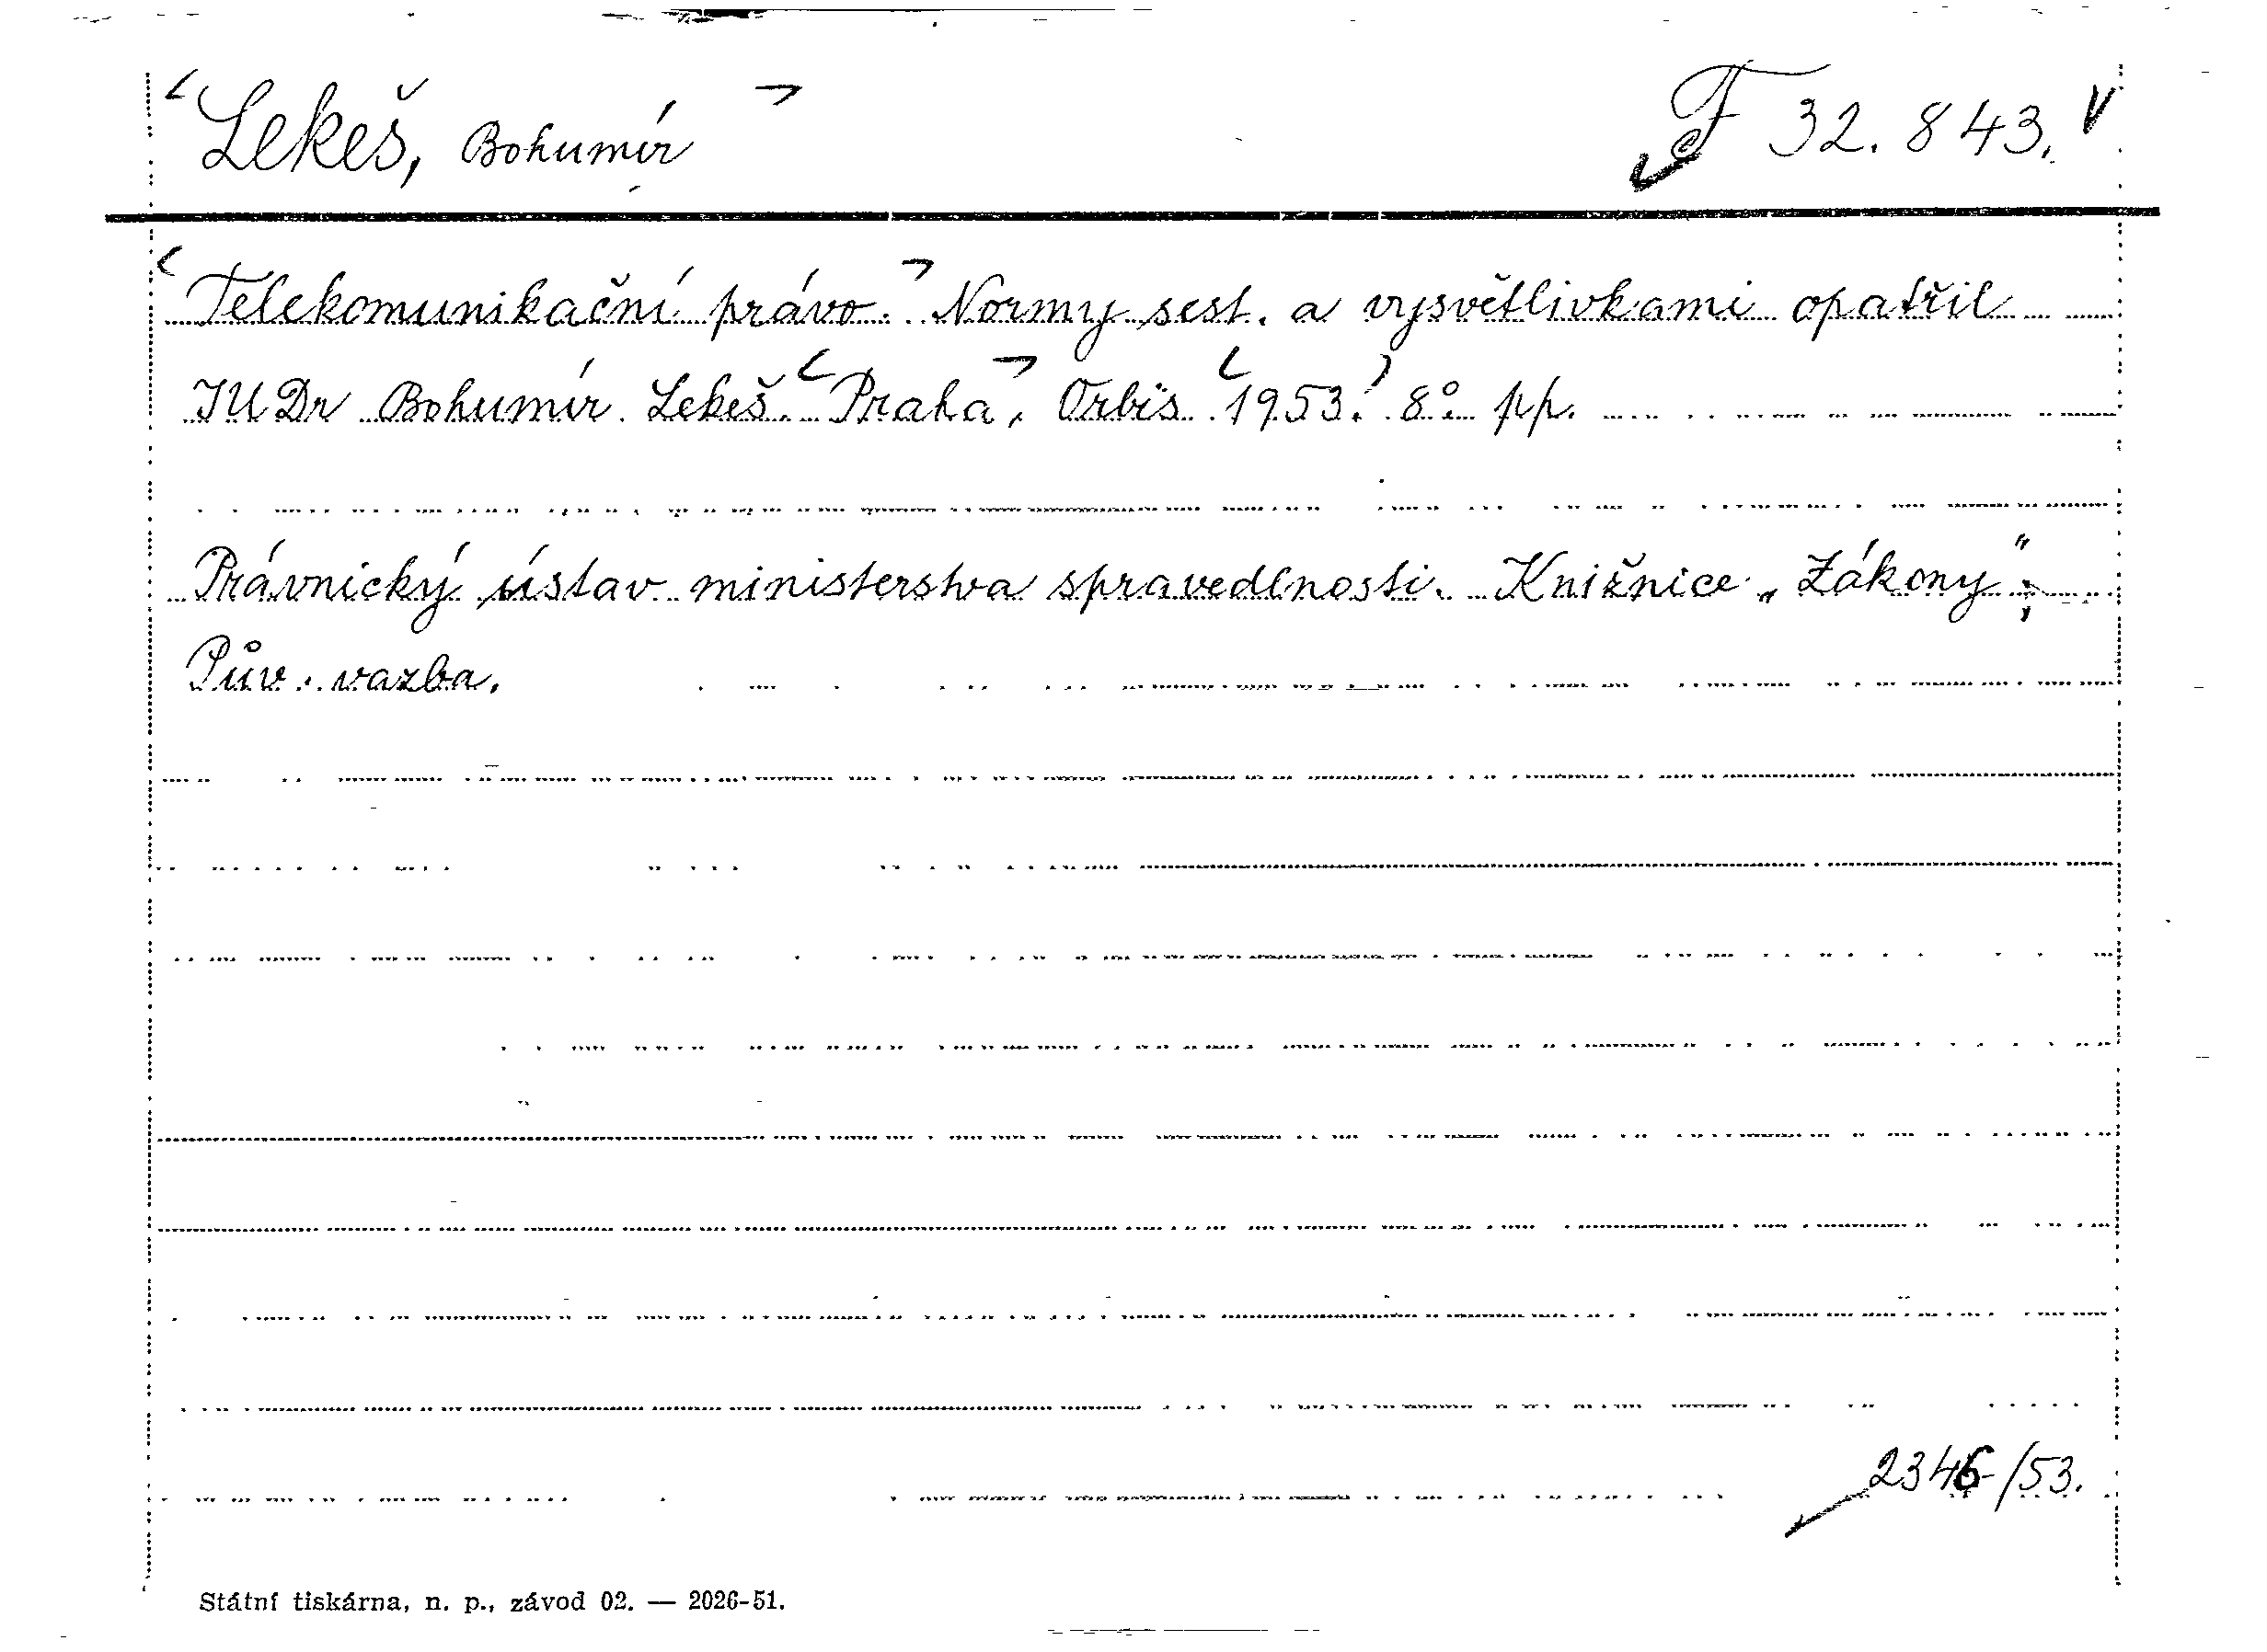 Lekeš, Bohumír F 32.843.
Telekomunikační právo. Normy sest. a vysvětlivkami opatřil
JUDr Bohumír Lekeš. Praha, Orbis 1953. 8°. pp.
Právnický ústav ministerstva spravedlnosti. Knižnice „Zákony";
Pův. vazba.
2346/53.
Státní tiskárna, n. p., závod 02. — 2026-51.